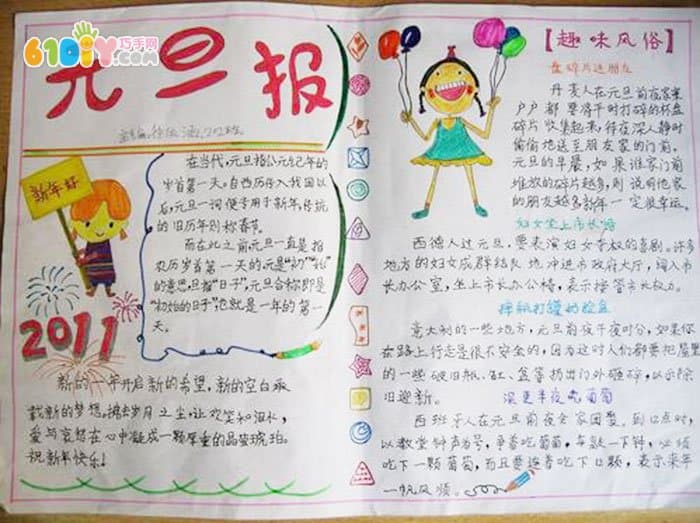 61DIY巧手网
元旦报
新年好
2011
在当代,元旦指公元纪年的
岁首第一天。自西历传入我国以
后,元旦一词便专用于新年,传统
的旧历年则称春节。
而在此之前,元旦一直是指
农历岁首第一天的。元是“初”“始”
的意思,旦指“日子”,元旦合称即是
“初始的日子”也就是一年的第一
天。
新的一年开启新的希望,新的空白承
载新的梦想。拂去岁月之尘,让欢笑和泪水,
爱与哀愁在心中凝成一颗厚重的晶莹琥珀。
祝新年快乐!
【趣味风俗】
盘碎片送朋友
丹麦人在元旦前夜家家
户户都要将平时打碎的杯盘
碎片收集起来,待夜深人静时
偷偷地送至朋友家的门前。
元旦的早晨,如果谁家门前
堆放的碎片越多,则说明他家
的朋友越多,新年一定很幸运。
妇女坐上市长椅
西德人过元旦,要表演妇女夺权的喜剧。许多
地方的妇女成群结队地冲进市政府大厅,闯入市
长办公室,坐上市长办公椅,表示接管市长权力。
摔瓶打罐扔脸盆
意大利的一些地方,元旦前夜午夜时分,如果你
在路上行走是很不安全的,因为这时人们都要把屋里
的一些破旧瓶、缸、盆等扔出门外砸碎,以示除
旧迎新。
深更半夜吃葡萄
西班牙人在元旦前夜全家团聚。到12点时,
以教堂钟声为号,争着吃葡萄,每敲一下钟,必须
吃下一颗葡萄,而且要连着吃下12颗,表示来年
一帆风顺。